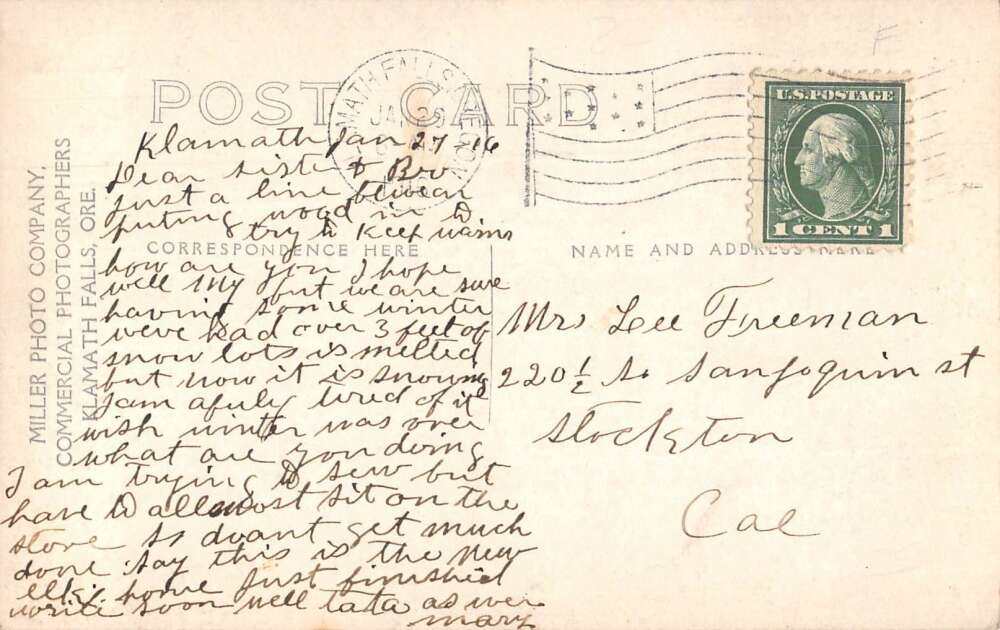 POST CARD
KLAMATH FALLS OREGON
JAN 26
Klamath Jan 27 16
Dear sister & Bro
just a line between
puting wood in &
try to keep warm
CORRESPONDENCE HERE
how are you I hope
well My but we are sure
having some winter
weve had over 3 feet of
snow lots is melted
but now it is snowing
I am afuly tired of it
wish winter was over
what are you doing
I am trying to sew but
have to allmost sit on the
stove so doant get much
done say this is the new
elks home just finished
write soon well tata as ever
mary
MILLER PHOTO COMPANY,
COMMERCIAL PHOTOGRAPHERS
KLAMATH FALLS, ORE.
U.S. POSTAGE
1 CENT 1
NAME AND ADDRESS HERE
Mrs Lee Freeman
220½ So Sanjoquin st
Stockton
Cal
F